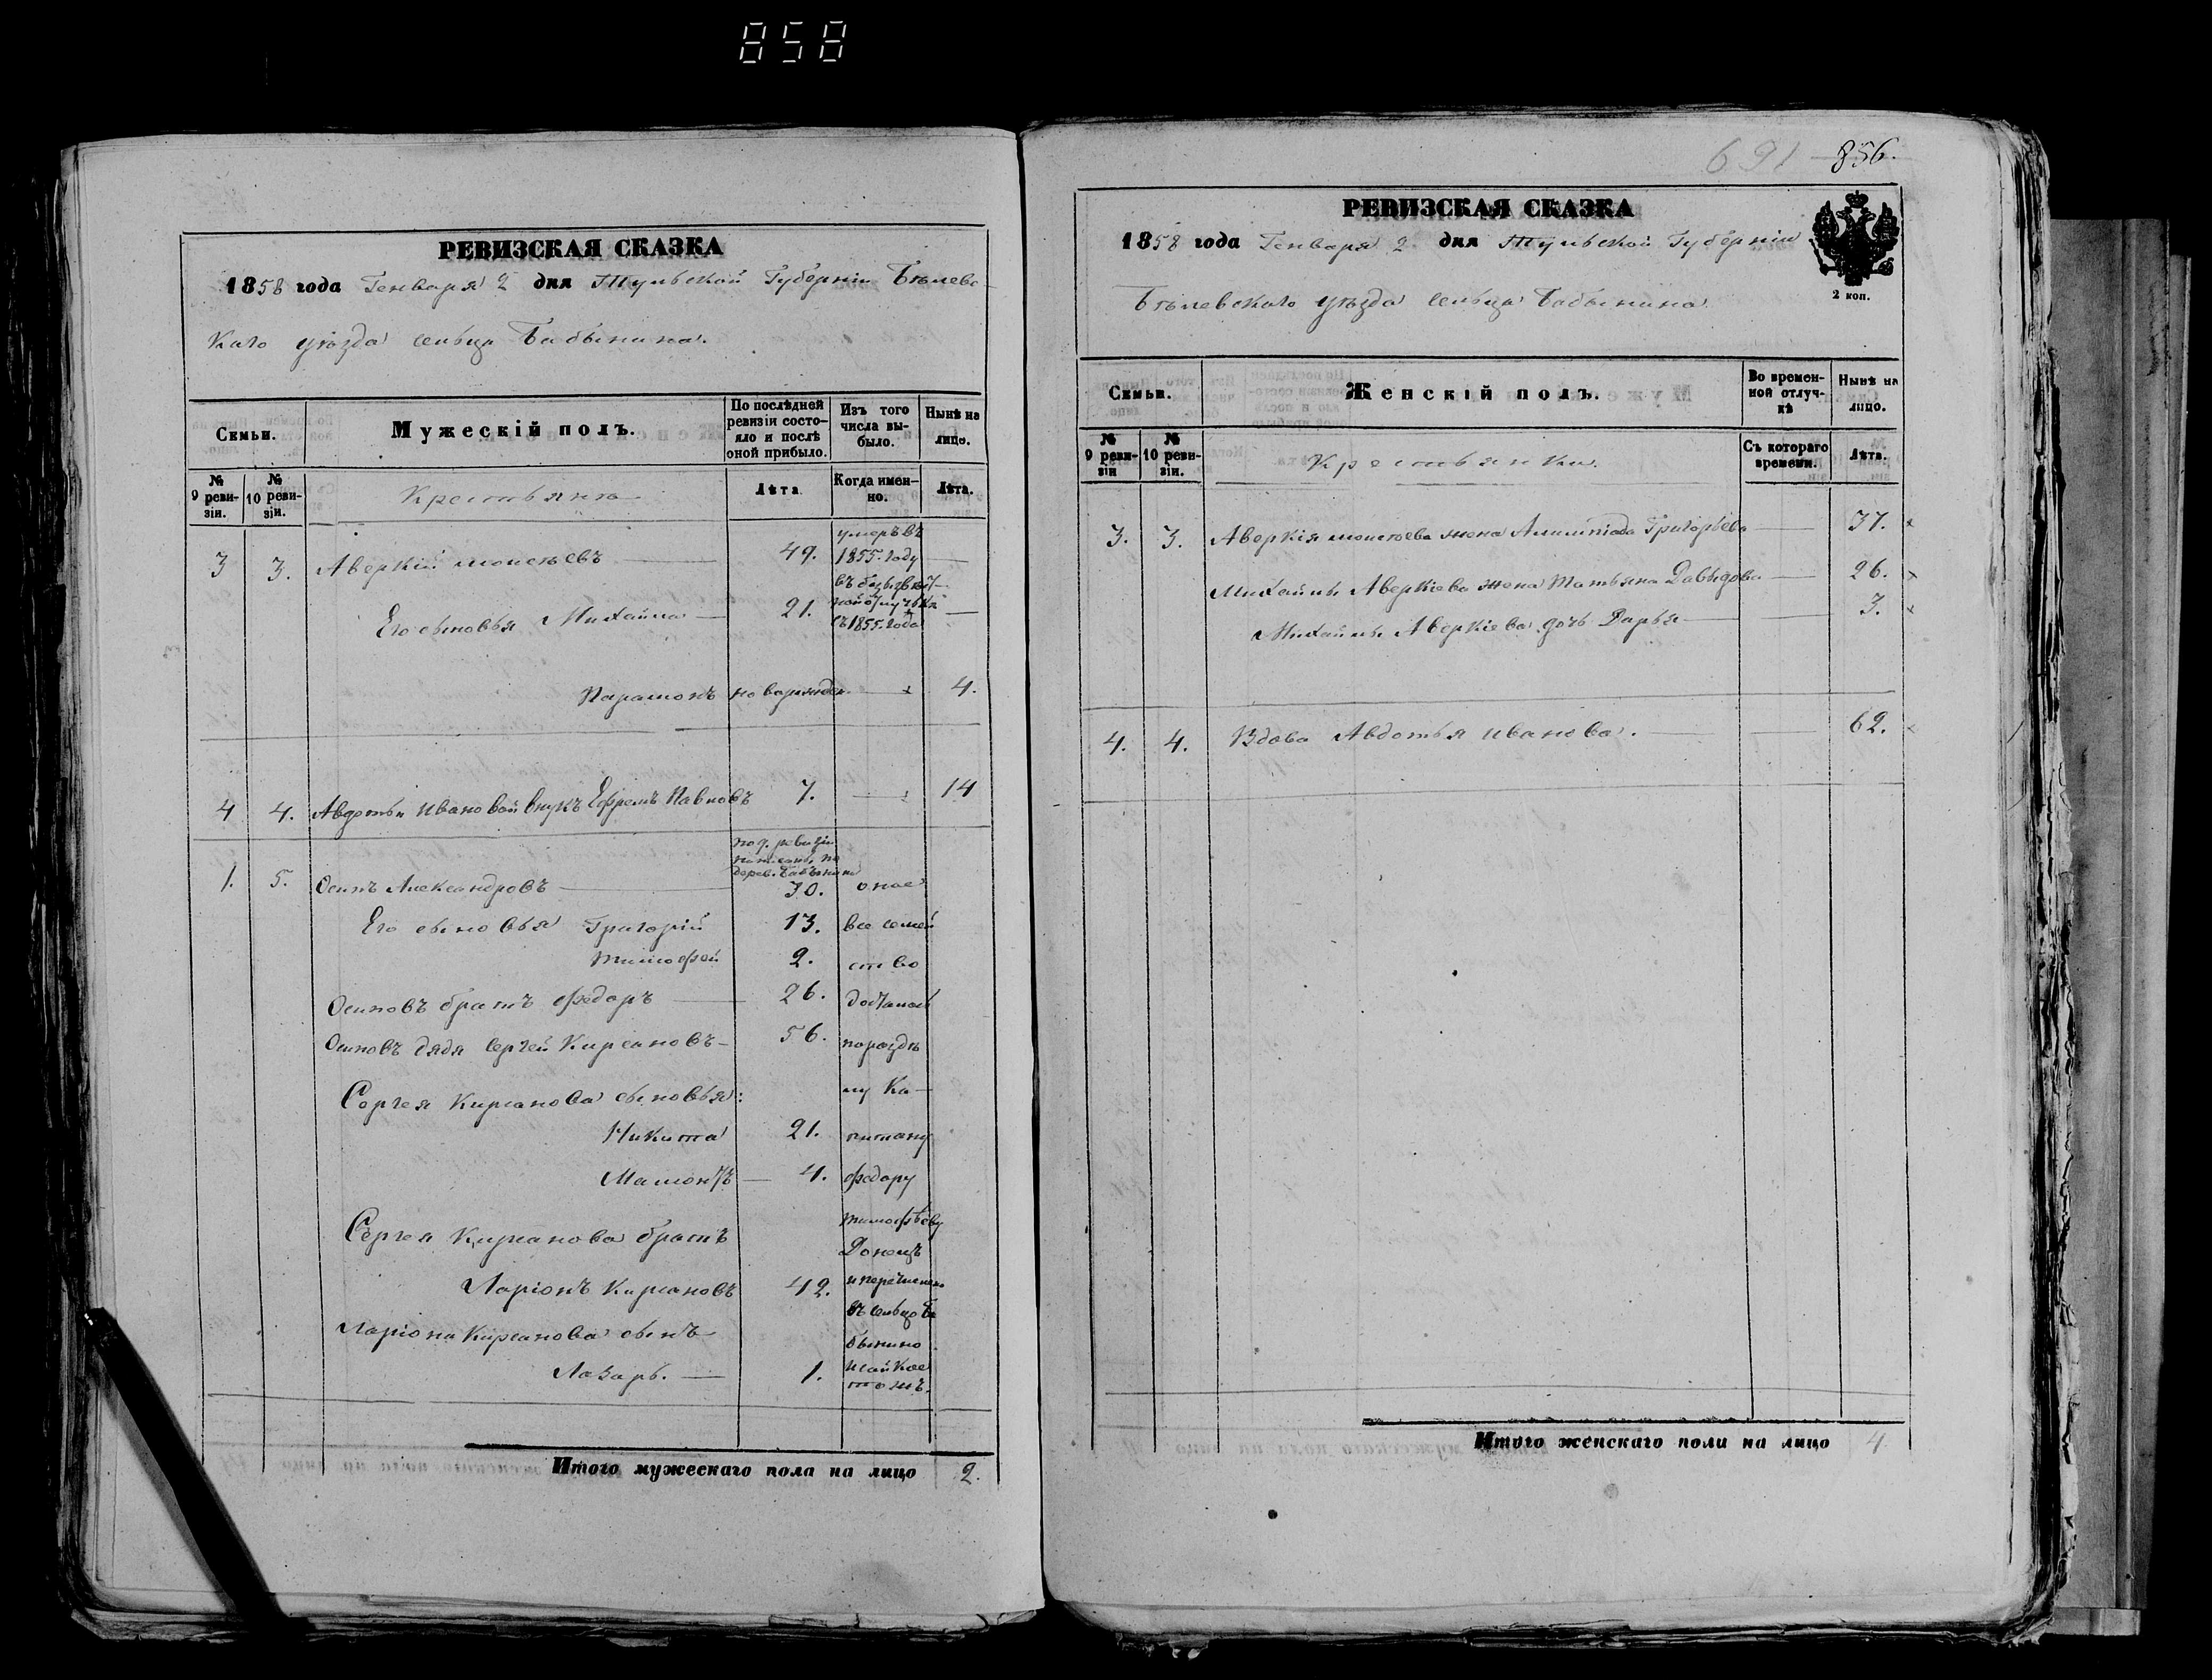 858
РЕВИЗСКАЯ СКАЗКА
1858 года Генваря 2 дня Тульской Губерніи Бѣлевс-
каго уѣзда сельца Бабынина.
Семьи.
Мужескій полъ.
По послѣдней ревизіи состояло и послѣ оной прибыло.
Изъ того числа выбыло.
Ныне на лицо.
№ 9 ревизіи.
№ 10 ревизіи.
Крестьянѣ
Лѣта
Когда именно.
Лѣта.
умеръ въ
3 3. Аверкій Моисѣевъ 49. 1855. году
въ безъизвѣст-
Его сыновья Михайла 21. ной отлучкѣ
съ 1855. года
Парамонъ новорожден. 4.
4 4. Авдотьи Ивановой внукъ Ефремъ Павловъ 7. 14
по 9. ревизіи
написаны по
дерев. Бабыниной
1. 5. Осипъ Александровъ 30. оное
Его сыновья Григорій 13. все семей
Тимофей 2. ство
Осиповъ братъ Федоръ 26. достались
Осиповъ дядя Сергей Кирсановъ 56. по раздѣ
Сергея Кирсанова сыновья: лу Ка-
Никита 21. питану
Мамонтъ 4. Федору
Тимофѣеву
Сергея Кирсанова братъ Донецъ
Ларіонъ Кирсановъ 42. и перечислено
въ сельцо Ба
Ларіона Кирсанова сынъ бынино
Лазарь. 1. Шайкое
тожъ.
Итого мужескаго пола на лицо 2.
691 856.
РЕВИЗСКАЯ СКАЗКА
1858 года Генваря 2 дня Тульской Губерніи
2 коп.
Бѣлевскаго уѣзда сельца Бабынина.
Семьи.
Женскій полъ.
Во временной отлучкѣ
Нынѣ на лицо.
№ 9 ревизіи
№ 10 ревизіи.
Крестьянки.
Съ котораго времени.
Лѣта.
3. 3. Аверкія Моисѣева жена Алимпіада Григорьева 37.
Михайлы Аверкіева жена Татьяна Давыдова 26.
Михайлы Аверкіева дочь Дарья 3.
4. 4. Вдова Авдотья Иванова. 62.
Итого женскаго пола на лицо 4